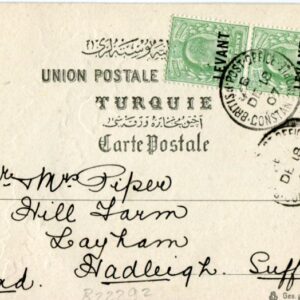 UNION POSTALE
TURQUIE
Carte Postale
LEVANT
BRITISH POST OFFICE
CONSTAN
DE 18
Mrs Piper
Hill Farm
Layham
Hadleigh. Suff
R22292